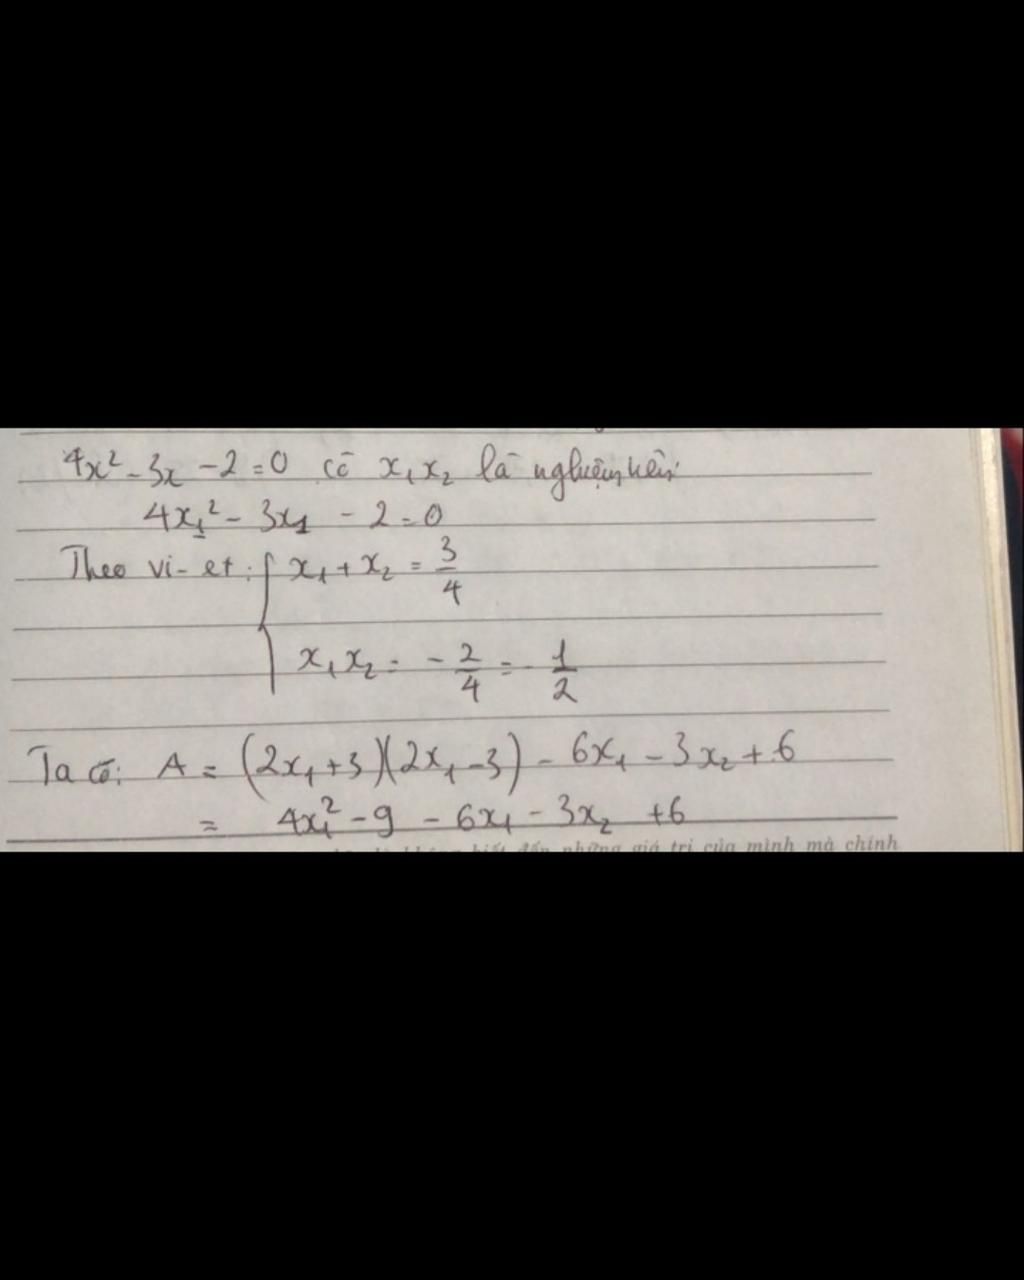 4x² - 3x - 2 = 0 có x₁ x₂ là nghiệm nên:
4x₁² - 3x₁ - 2 = 0
Theo vi-et: { x₁ + x₂ = 3/4
x₁ x₂ = - 2/4 = - 1/2
Ta có: A = (2x₁ + 3)(2x₁ - 3) - 6x₁ - 3x₂ + 6
= 4x₁² - 9 - 6x₁ - 3x₂ + 6
biết đến những giá trị của mình mà chính